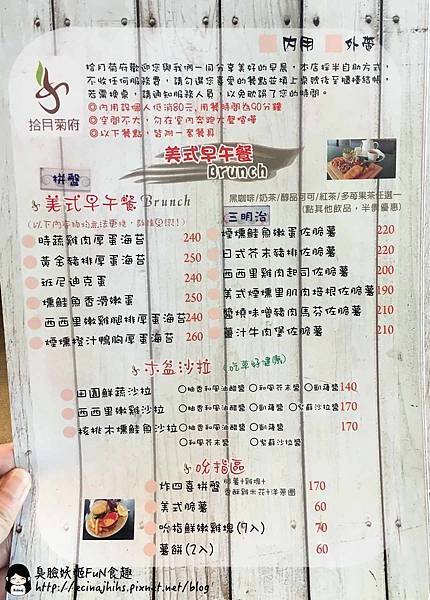 內用 外帶
拾月菊府歡迎您與我們一同分享美好的早晨，本店採半自助方式，
不收任何服務費，請勾選您喜愛的餐點並填上桌號後至櫃檯結帳，
若需換桌，請通知服務人員，以免耽誤了您的時間。
◎內用設個人低消80元，用餐時間為90分鐘
◎空間不大，勿在室內奔跑大聲喧嘩
◎以下餐點，皆附一套餐具
拾月菊府
美式早午餐
Brunch
拼盤
美式早午餐 Brunch
時蔬雞肉厚蛋海苔 240
黃金豬排厚蛋海苔 240
班尼迪克蛋 240
燻鮭魚香滑嫩蛋 250
西西里嫩雞腿排厚蛋海苔 250
煙燻橙汁鴨胸厚蛋海苔 260
黑咖啡/奶茶/醇品可可/紅茶/多苺果茶任選一
(點其他飲品，半價優惠)
三明治
煙燻鮭魚嫩蛋佐脆薯 220
日式芥末豬排佐脆薯 220
西西里雞肉起司佐脆薯 200
美式煙燻里肌肉培根佐脆薯 190
醬燒味噌豬肉馬芬佐脆薯 210
薑汁牛肉堡佐脆薯 210
木盆沙拉 (吃草好健康)
田園鮮蔬沙拉 ○柚香和風油醋醬 ○和風芥末醬 ○凱薩醬 140
西西里嫩雞沙拉 ○柚香和風油醋醬 ○凱薩醬 ○紫蘇沙拉醬 170
核桃木燻鮭魚沙拉 ○柚香和風油醋醬 ○凱薩醬 170
○和風芥末醬 ○紫蘇沙拉醬
吮指區
炸四喜拼盤 脆薯+雞塊+ 170
香酥雞米花+洋蔥圈
美式脆薯 60
吮指鮮嫩雞塊(9入) 70
薯餅(2入) 60
臭臉妖姬FuN食趣
http://ecinajhihs.pixnet.net/blog